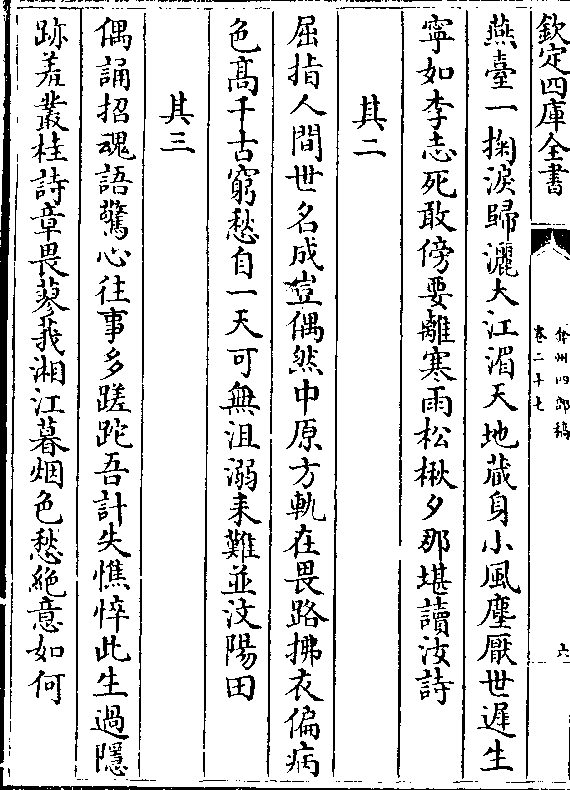 欽定四庫全書
弇州四部稿
卷二十七
六
燕臺一掬淚歸灑大江湄天地藏身小風塵厭世遲生
寧如李志死敢傍要離寒雨松楸夕那堪讀汝詩
其二
屈指人間世名成豈偶然中原方軌在畏路拂衣偏病
色髙千古窮愁自一天可無沮溺耒難並汶陽田
其三
偶誦招魂語驚心往事多蹉跎吾計失憔悴此生過隱
跡羞叢桂詩章畏蓼莪湘江暮烟色愁絶意如何